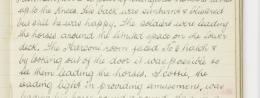 up to the knees. His back was sunburnt & blistered
but still he was happy. The soldiers were leading
the horses around the limited space on the lower
deck. The Marconi room faced No 6 hatch &
by looking out of the door it was possible to
see them leading the horses. Scottie, the
leading light in providing amusement, was